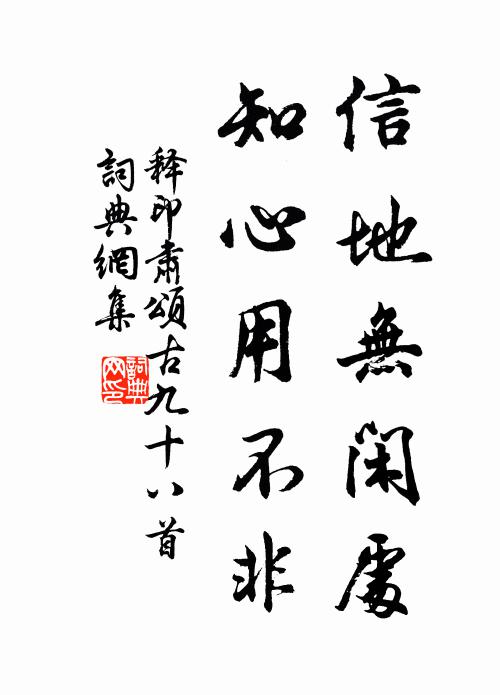 信地無閑處
知心用不非
釋印肅頌古九十八首
詞典網集
詞典網印